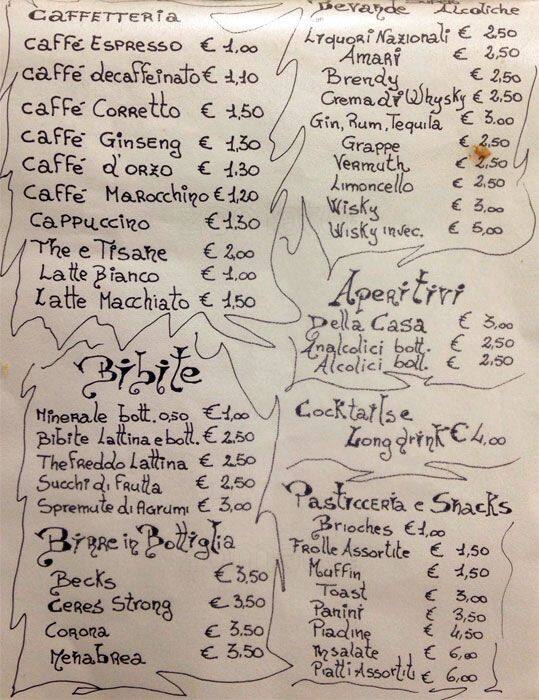 CAFFETTERIA
CAFFÉ ESPRESSO € 1,00
CAFFÉ decaffeinato € 1,10
CAFFÉ CORRETTO € 1,50
CAFFÉ GINSENG € 1,30
CAFFÉ d'ORZO € 1,30
CAFFÉ MAROCCHINO € 1,20
CAPPUCCINO € 1,30
The e Tisane € 2,00
Latte Bianco € 1,00
Latte Macchiato € 1,50
Bibite
Minerale bott. 0,50 € 1,00
Bibite Lattina e bott. € 2,50
The Freddo Lattina € 2,50
Succhi di Frutta € 2,50
Spremute di Agrumi € 3,00
Birre in Bottiglia
Becks € 3,50
Ceres Strong € 3,50
Corona € 3,50
Menabrea € 3,50
Bevande Alcoliche
Liquori Nazionali € 2,50
Amari € 2,50
Brendy € 2,50
Crema di Whysky € 2,50
Gin, Rum, Tequila € 3,00
Grappe € 2,50
Vermuth € 2,50
Limoncello € 2,50
Wisky € 3,00
Wisky invec. € 5,00
Aperitivi
Della Casa € 3,00
Analcolici bott. € 2,50
Alcolici bott. € 2,50
Cocktails e
Long drink € 4,00
Pasticceria e Snacks
Brioches € 1,00
Frolle Assortite € 1,50
Muffin € 1,50
Toast € 3,00
Panini € 3,50
Piadine € 4,50
Insalate € 6,00
Piatti Assortiti € 6,00